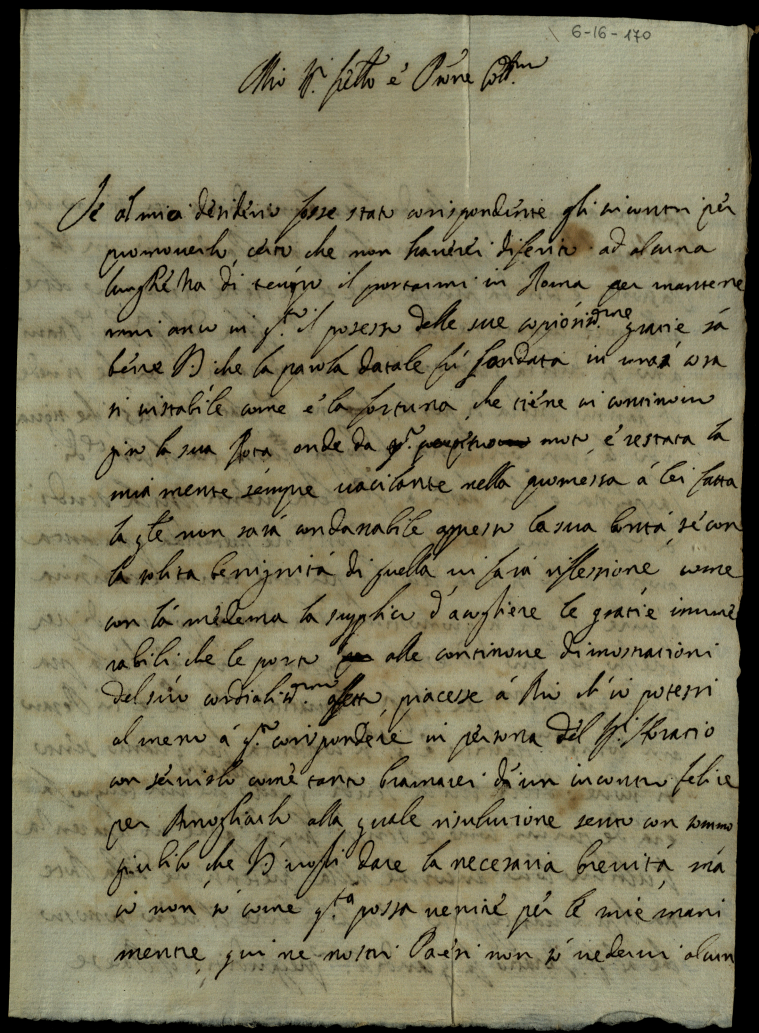 6-16-170
Mio Sr. frello e Prone Coll.mo
Se al mio desiderio fosse stato corispondente gli incontri per
promoverlo, certo che non haverei diferito ad alcuna
lunghezza di tempo il portarmi in Roma per mantene
rmi anco in q.to il possesso delle sue copiosis.me gratie sà
bene VS che la parola datale fù fondata in una cosa
si instabile come è la fortuna, che tiene in continuo
giro la sua Rota onde da q.o moto è restata la
mia mente sempre vacilante nella promessa à lei fatta
la q.le non sarà condanabile appresso la sua bontà, se con
la solita benignità di quella vi farà riflessione come
con la medema la supplico d'acogliere le gratie innume
rabili che le porto alle continove dimostrationi
del suo cordialis.mo affetto, piacesse à Dio ch'io potessi
almeno à q.to corispondere in persona del Sr. Horatio
con servirlo come tanto bramarei d'un incontro felice
per Amogliarlo alla quale risolucione sento con sommo
giubilo che VS vogli dare la necesaria brevità mà
io non sò come q.ta possa venire per le mie mani
mentre qui ne nostri Paesi non sò vedervi alcun